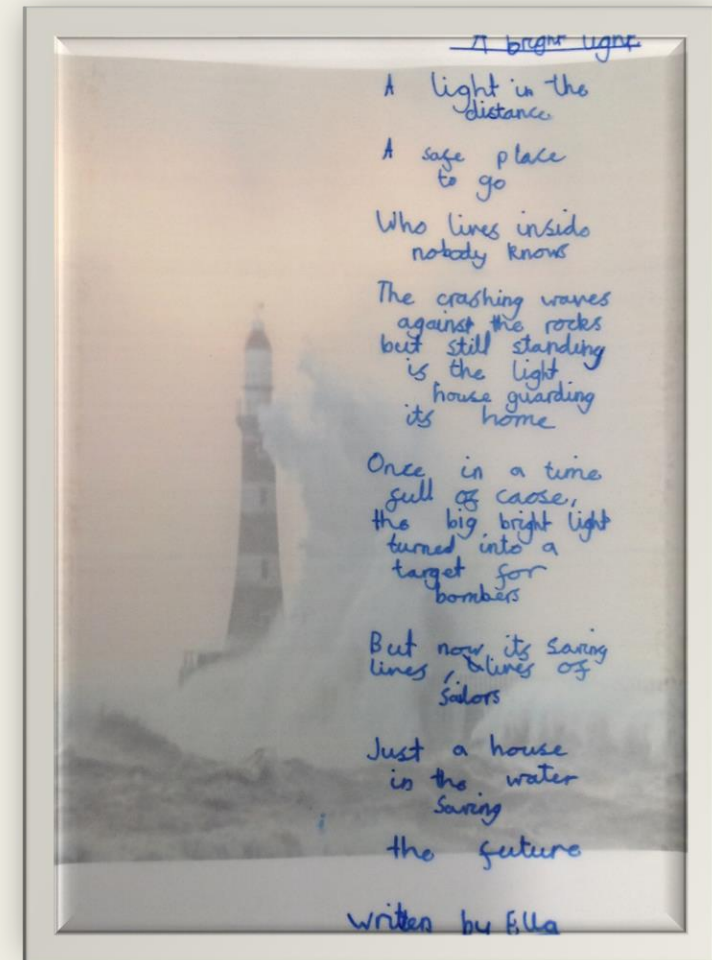 A bright light
A light in the
distance
A safe place
to go
Who lives inside
nobody knows
The crashing waves
against the rocks
but still standing
is the light
house guarding
its home
Once in a time
full of caose,
the big bright light
turned into a
target for
bombers
But now its saving
lives, lives of
sailors
Just a house
in the water
Saving
the future
written by Ella